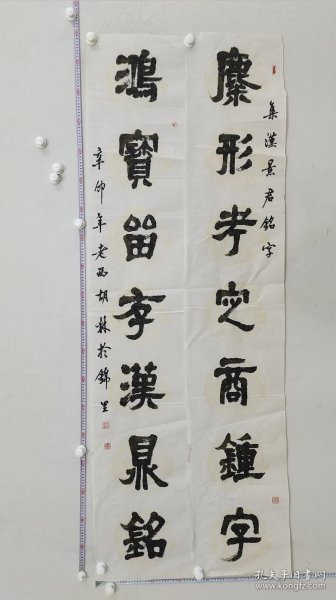 集漢景君銘字
麋形考定商鍾字
鴻寶留存漢鼎銘
辛卯年老西胡林於錦里
孔夫子旧书网
www.kongfz.com